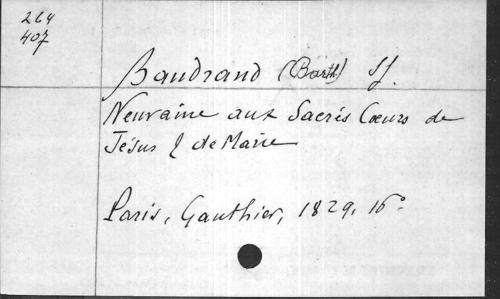 264
407
Baudrand (Barth) SJ.
Neuvaine aux Sacrés Cœurs de
Jésus & de Marie
Paris, Gauthier, 1829, 16°